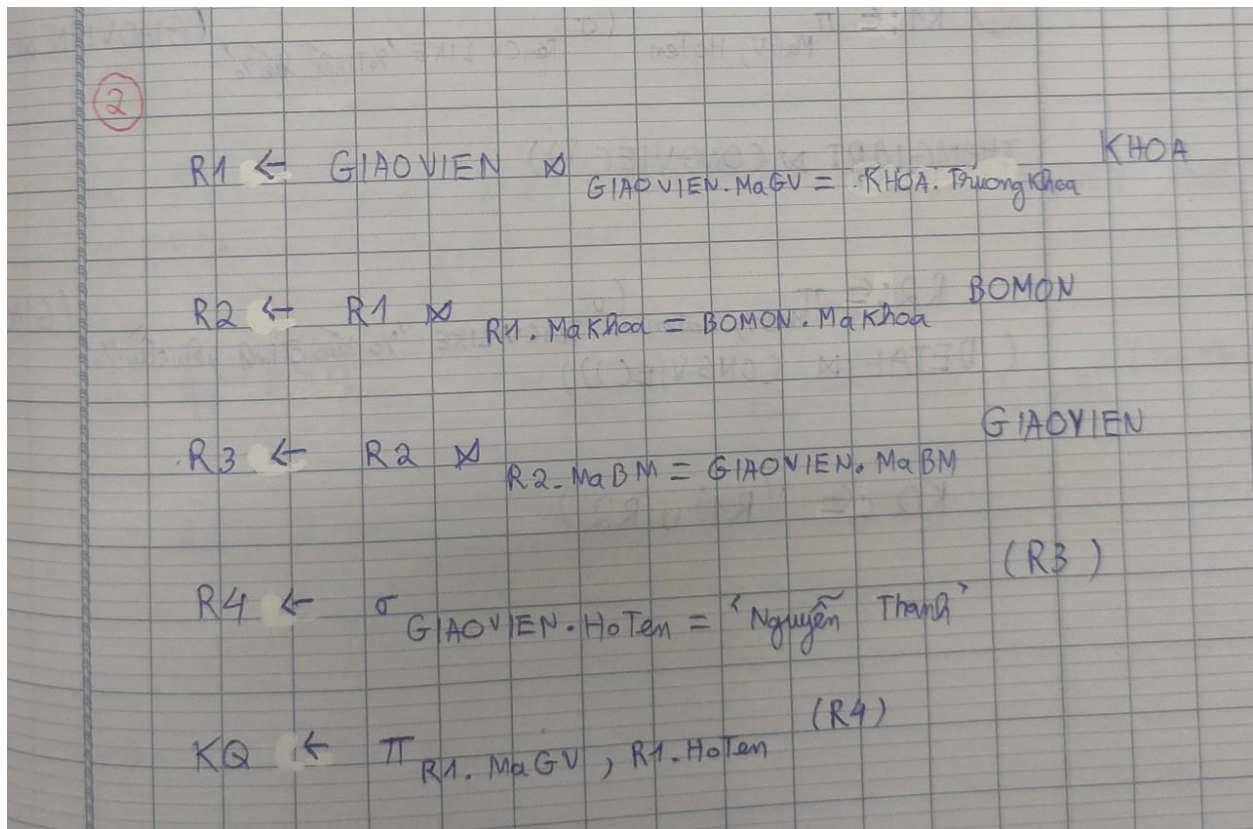 ②
R1 ← GIAOVIEN ⋈ GIAOVIEN.MaGV = KHOA.TrươngKhoa KHOA
R2 ← R1 ⋈ R1.MaKhoa = BOMON.MaKhoa BOMON
R3 ← R2 ⋈ R2.MaBM = GIAOVIEN.MaBM GIAOVIEN
R4 ← σ GIAOVIEN.HoTen = 'Nguyễn Thanh' (R3)
KQ ← π R1.MaGV, R1.HoTen (R4)